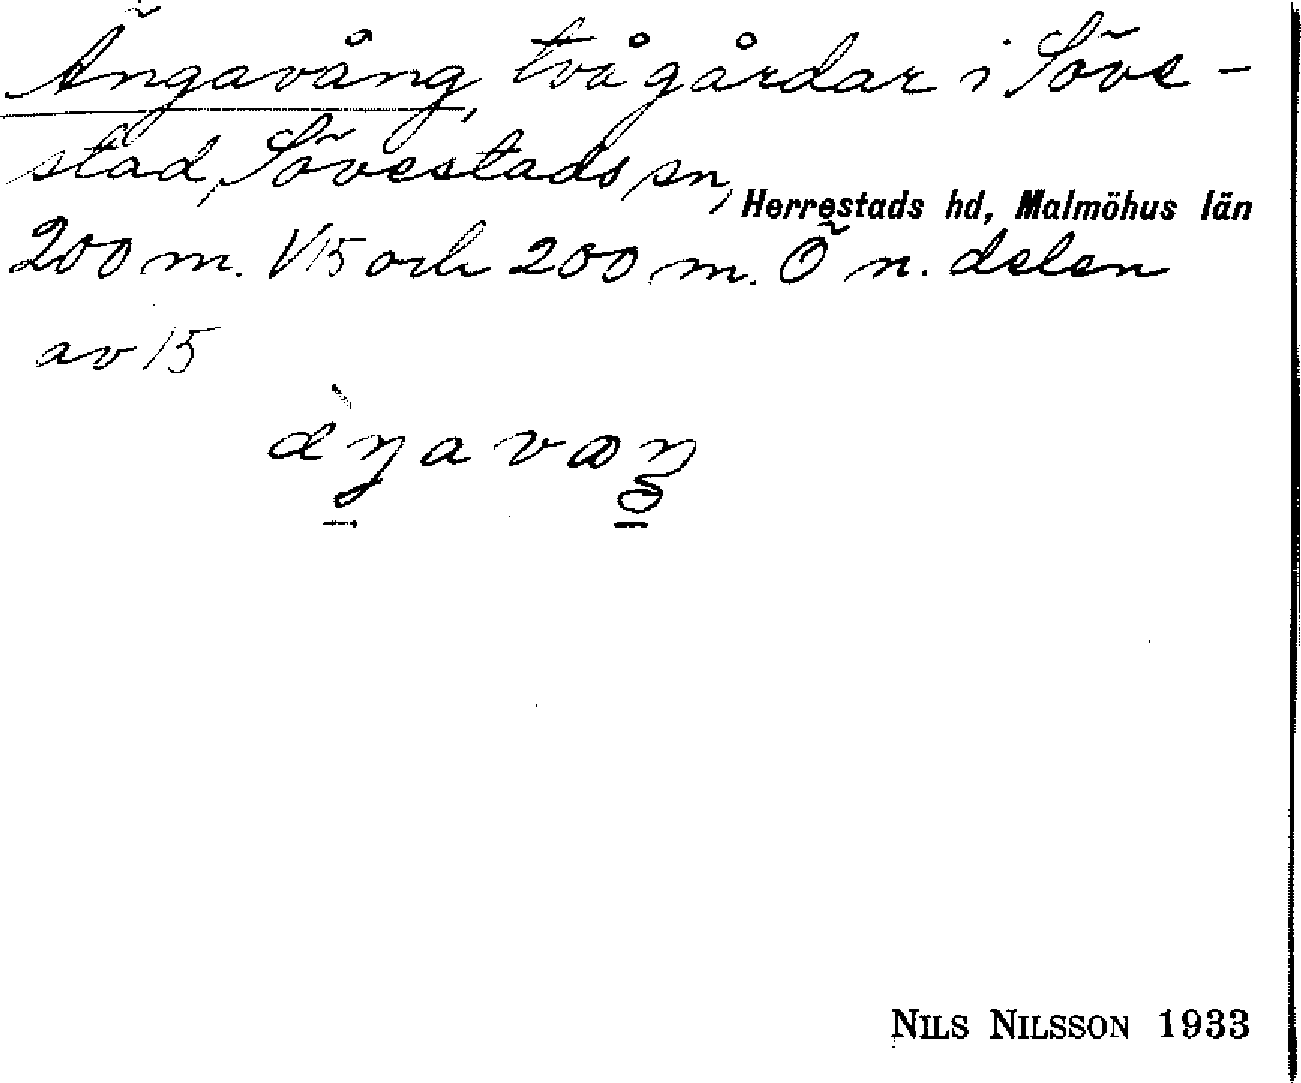 Ängavång, två gårdar i Söve-
stad, Sövestads sn, Herrestads hd, Malmöhus län
200 m. V 15 och 200 m. Ö n. delen
av 15
NILS NILSSON 1933